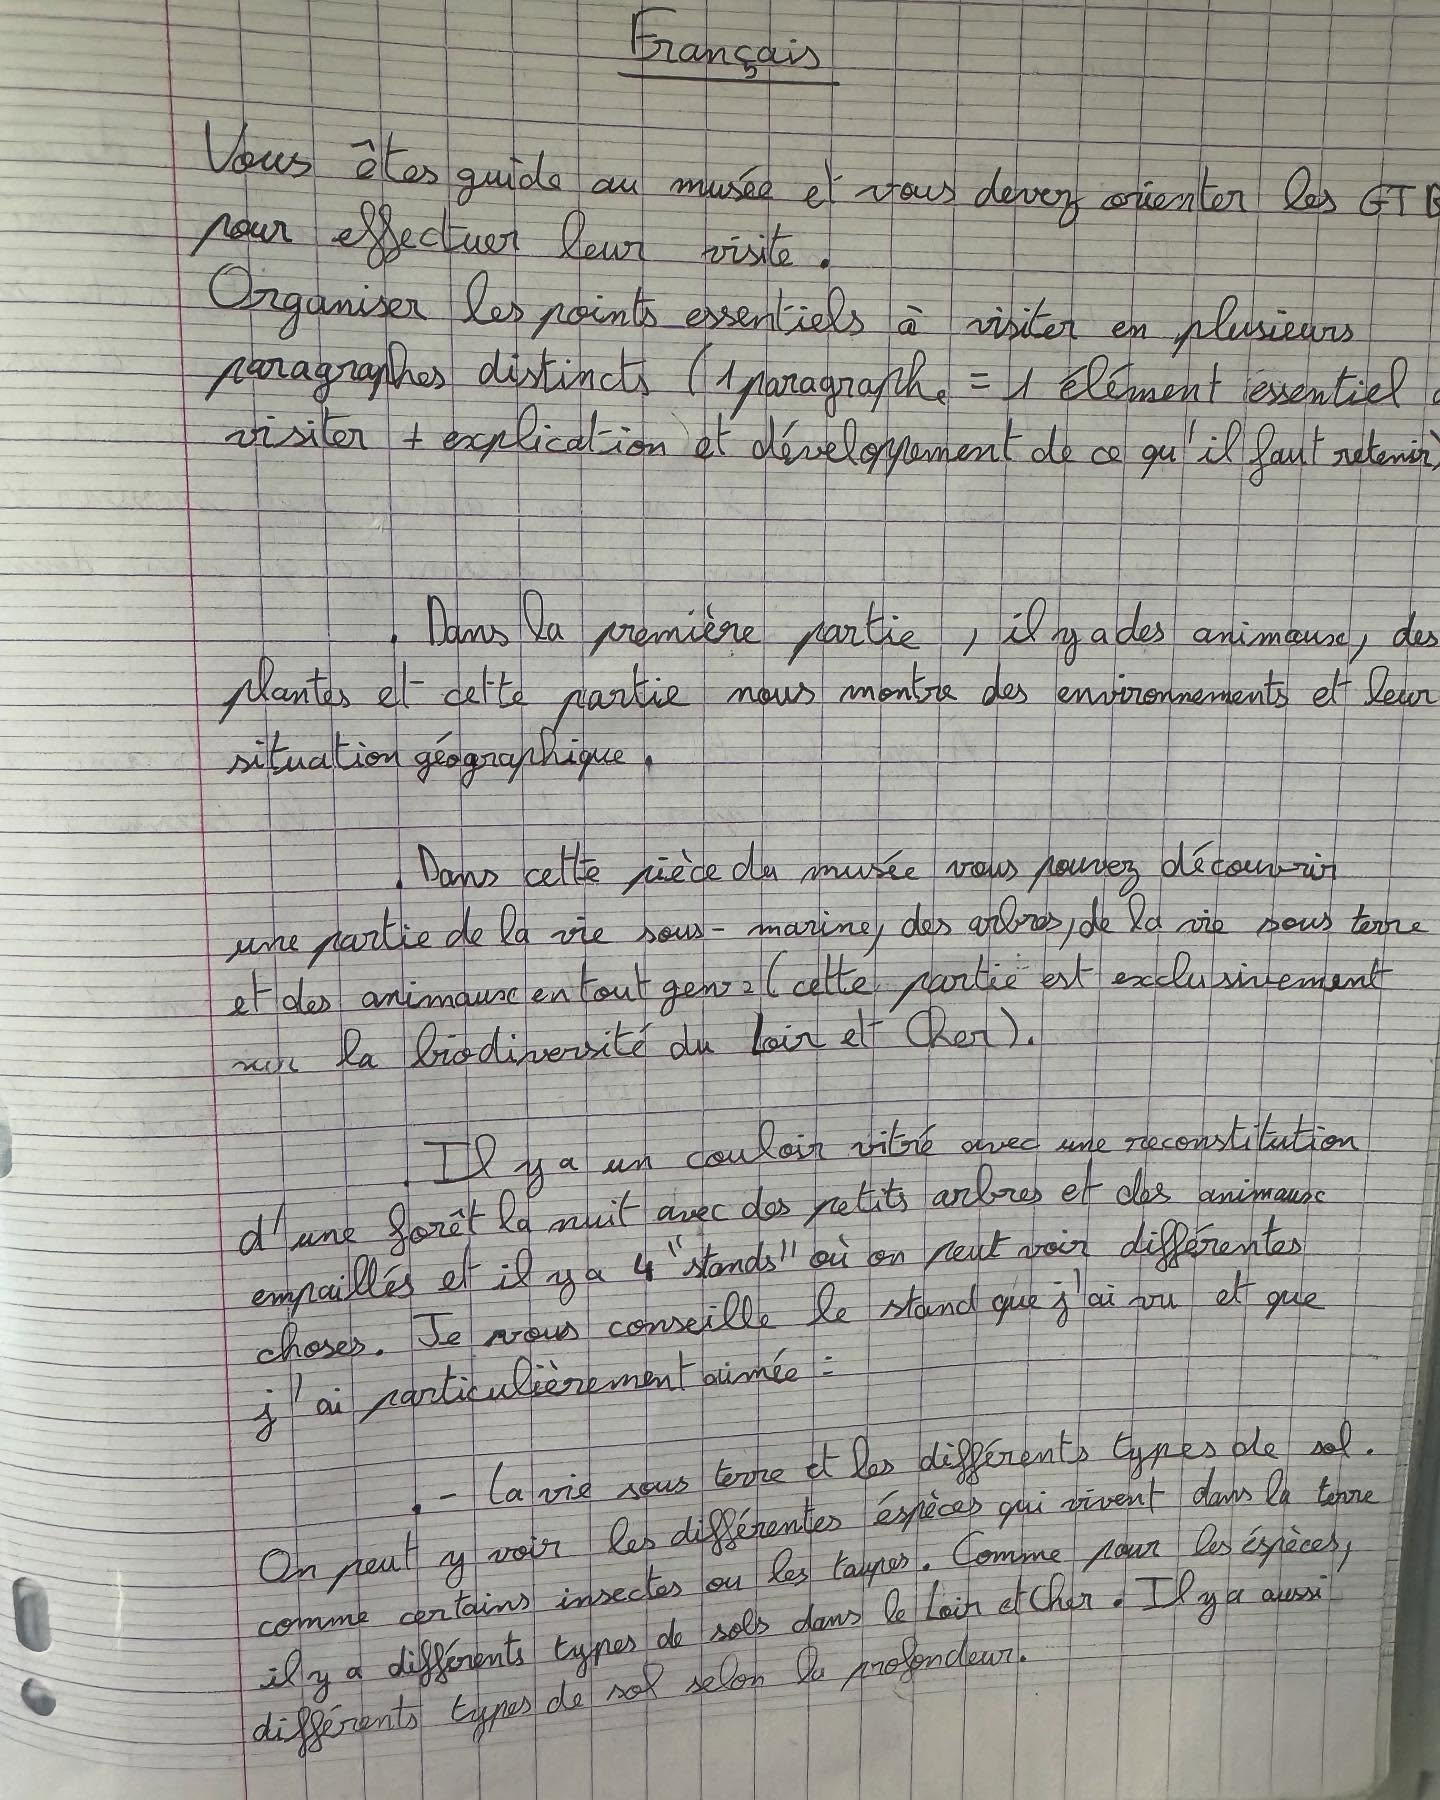 Français
Vous êtes guide au musée et vous devez orienter les GTB
pour effectuer leur visite.
Organiser les points essentiels à visiter en plusieurs
paragraphes distincts (1 paragraphe = 1 élément essentiel
visiter + explication et développement de ce qu'il faut retenir)
. Dans la première partie, il y a des animaux, des
plantes et cette partie nous montre des environnements et leur
situation géographique.
. Dans cette pièce du musée vous pouvez découvrir
une partie de la vie sous-marine, des arbres, de la vie sous terre
et des animaux en tout genre (cette partie est exclusivement
sur la biodiversité du Loir et Cher).
. Il y a un couloir vitré avec une reconstitution
d'une forêt la nuit avec des petits arbres et des animaux
empaillés et il y a 4 "stands" où on peut voir différentes
choses. Je vous conseille le stand que j'ai vu et que
j'ai particulièrement aimée :
. - La vie sous terre et les différents types de sol.
On peut y voir les différentes éspèces qui vivent dans la terre
comme certains insectes ou les taupes. Comme pour les éspèces,
il y a différents types de sols dans le Loir et Cher. Il y a aussi
différents types de sol selon la profondeur.